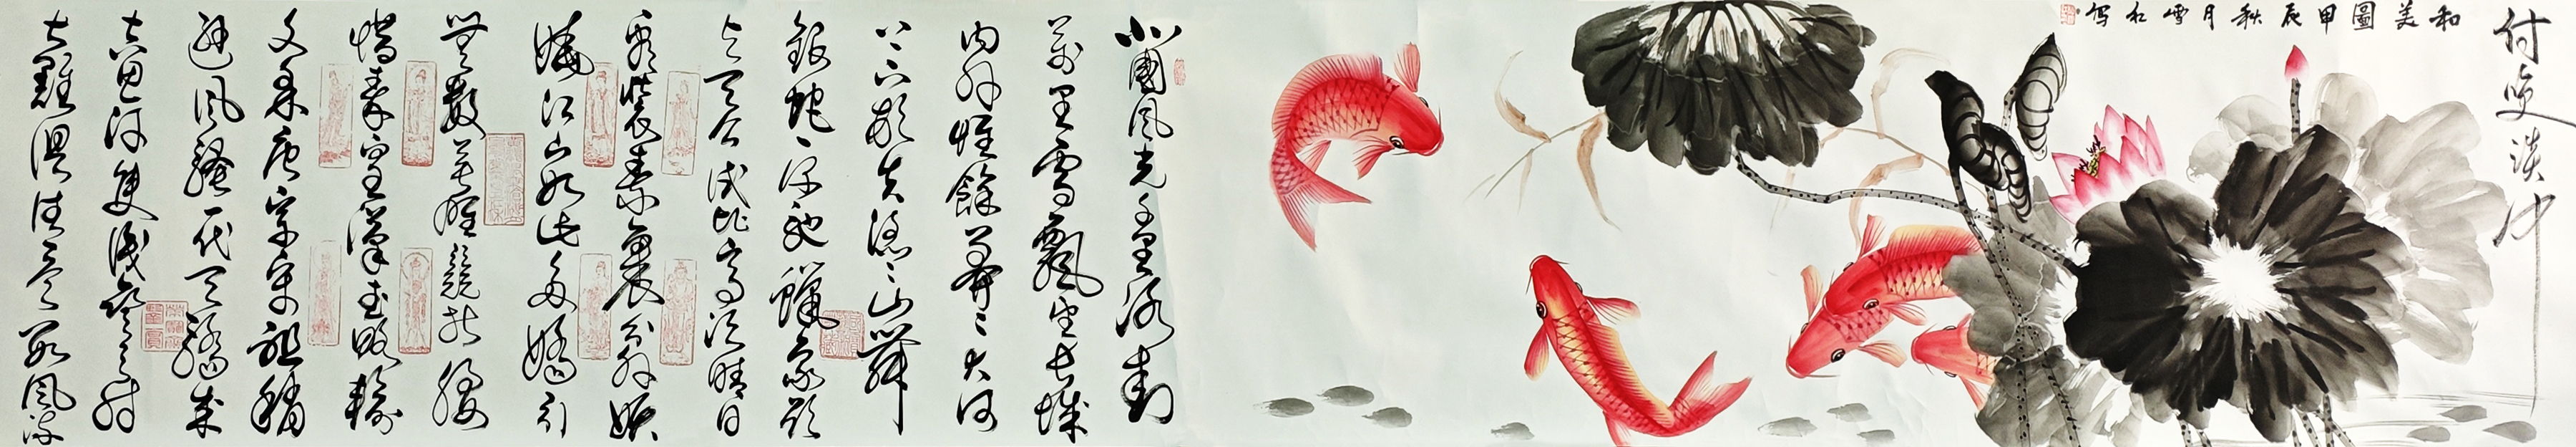 付笑談中
和美圖甲辰秋月雪紅寫
北國風光千里冰封
萬里雪飄望長城
内外惟餘莽々大河
上下頓失滔々山舞
銀蛇原馳蠟象欲
与天公試比高須晴日
看紅裝素裹分外妖
嬈江山如此多嬌引
無數英雄競折腰
惜秦皇漢武略輸
文采唐宗宋祖稍
遜風騷一代天驕成
吉思汗只識彎弓射
大雕俱往矣數風流